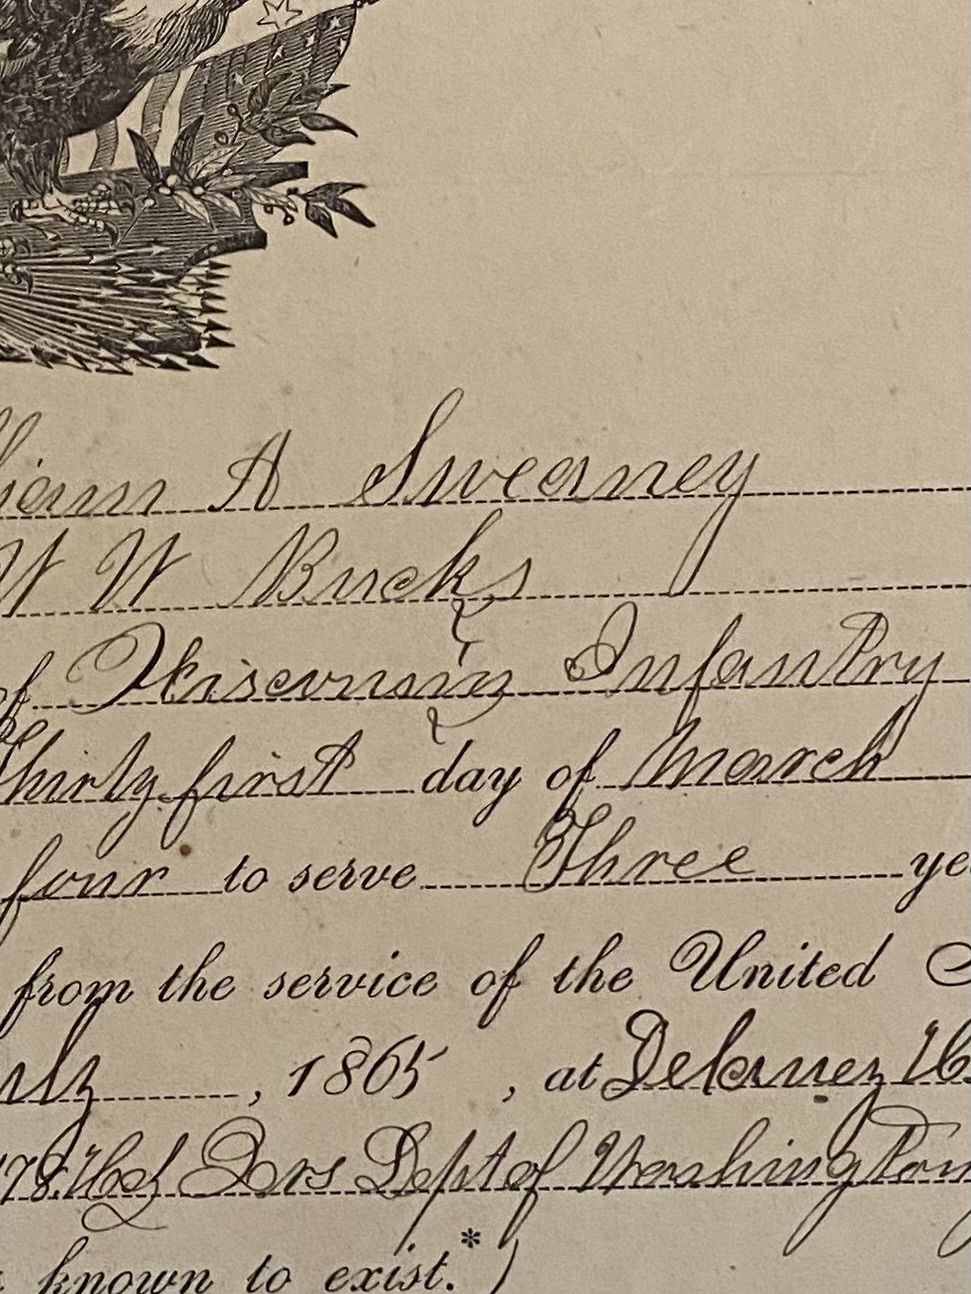 liam A Sweaney
W W Bucks
of Wisconsin Infantry
Thirty first day of March
four to serve Three ye
from the service of the United S
, 1865, at
Dept of Washington
known to exist.*)